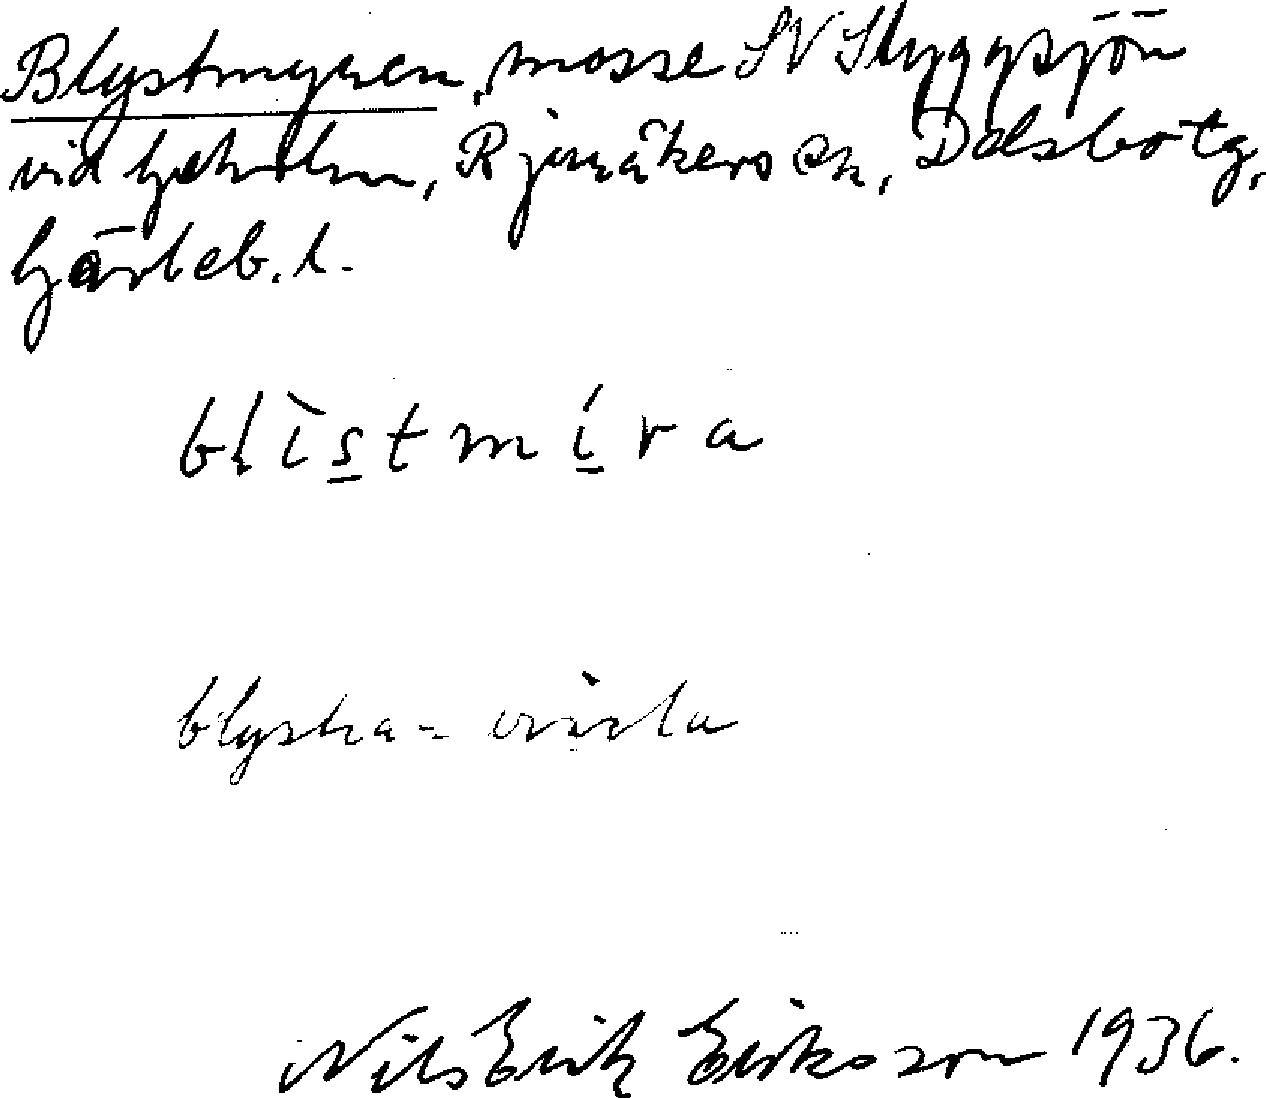 Blystmyren, mosse SV Skyggsjön
vid Gåcksbo, Bjuråkers sn, Delsbo tg,
Gävleb. l.
blìstmíra
blystra = vissla
Nils Erik Eriksson 1936.